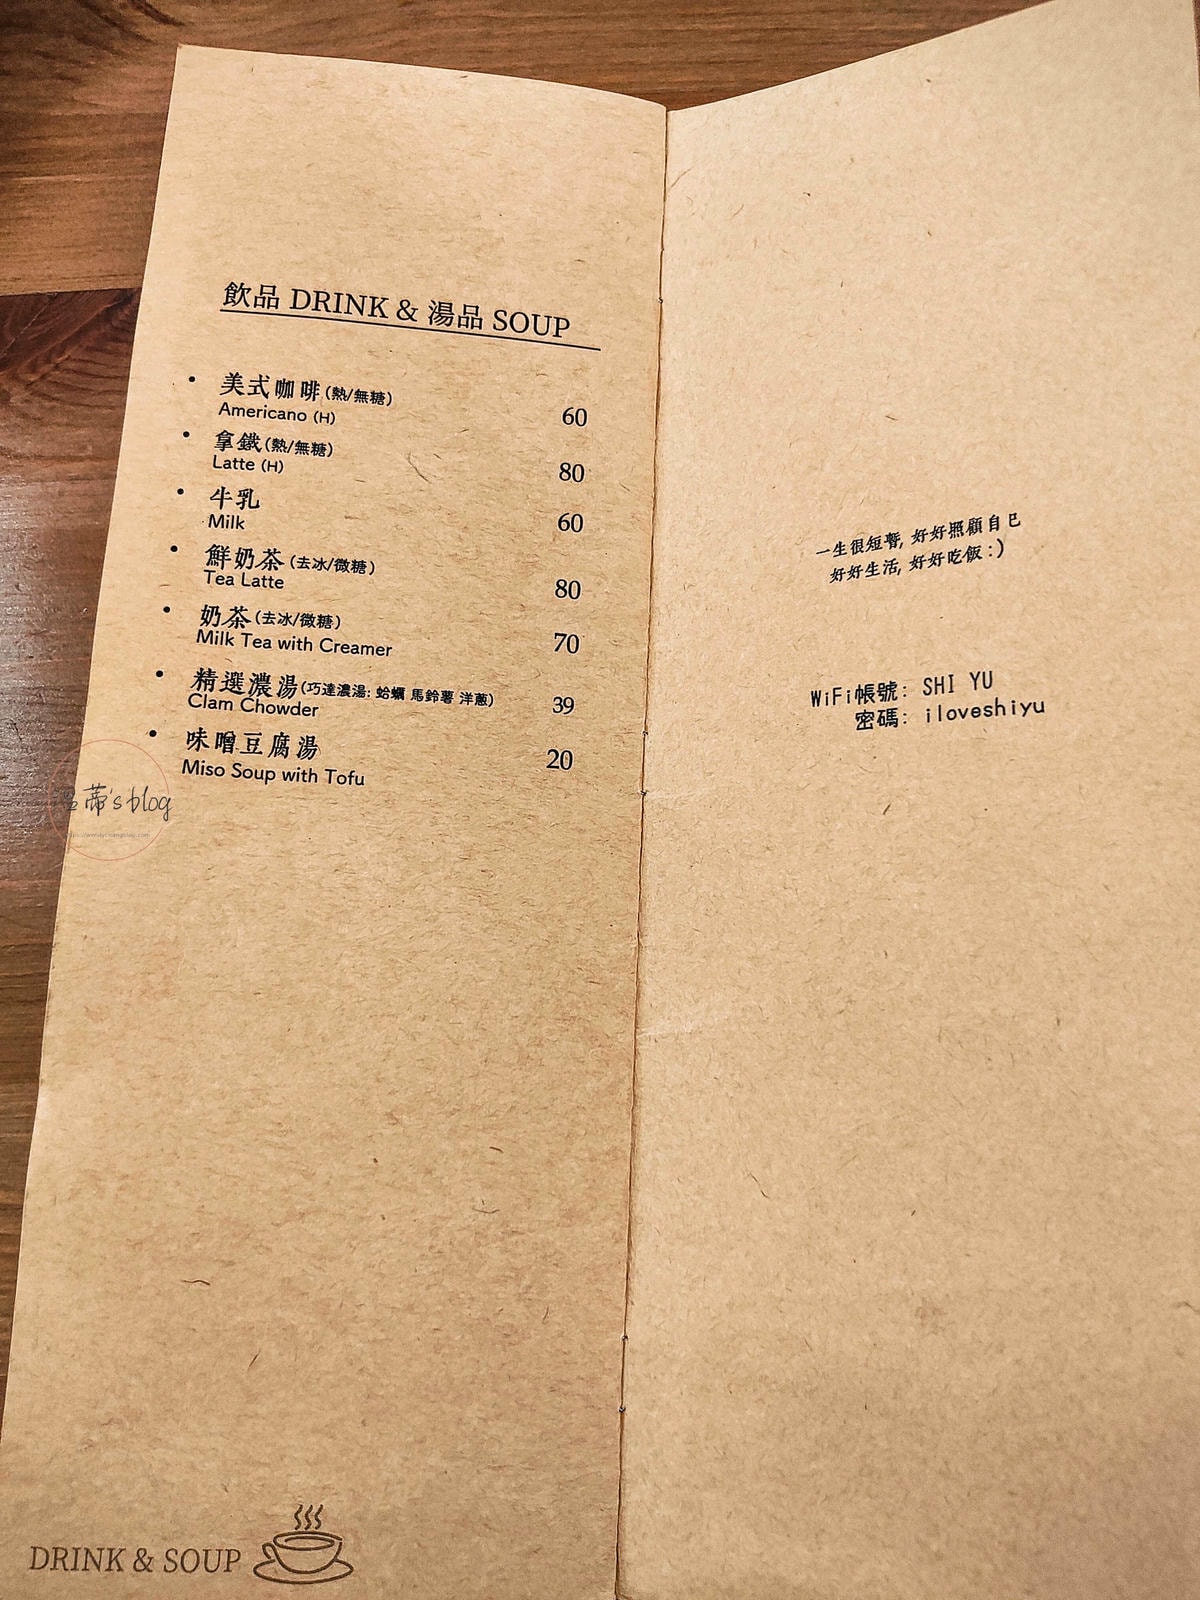 飲品 DRINK & 湯品 SOUP
美式咖啡(熱/無糖)
Americano (H) 60
拿鐵(熱/無糖)
Latte (H) 80
牛乳
Milk 60
鮮奶茶(去冰/微糖)
Tea Latte 80
奶茶(去冰/微糖)
Milk Tea with Creamer 70
精選濃湯(巧達濃湯: 蛤蠣 馬鈴薯 洋蔥)
Clam Chowder 39
味噌豆腐湯
Miso Soup with Tofu 20
蒂's blog
DRINK & SOUP
一生很短暫, 好好照顧自己
好好生活, 好好吃飯 :)
WiFi帳號: SHI YU
密碼: iloveshiyu